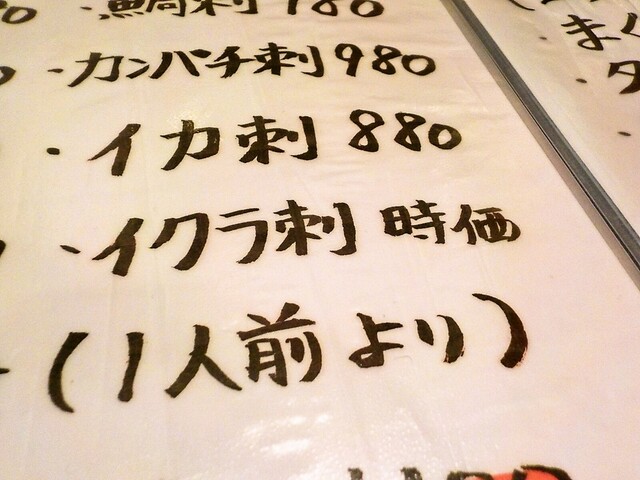 ・鯛刺 780
・カンパチ刺 980
・イカ刺 880
・イクラ刺 時価
(1人前より)